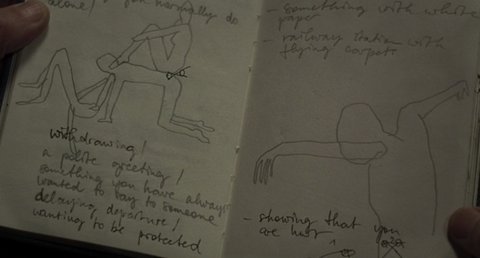 you normally do
alone!
withdrawing!
a polite greeting!
something you have always
wanted to say to someone
delaying departure!
wanting to be protected
- something with white
paper
- railway station with
flying carpet.
- showing that you
are hurt